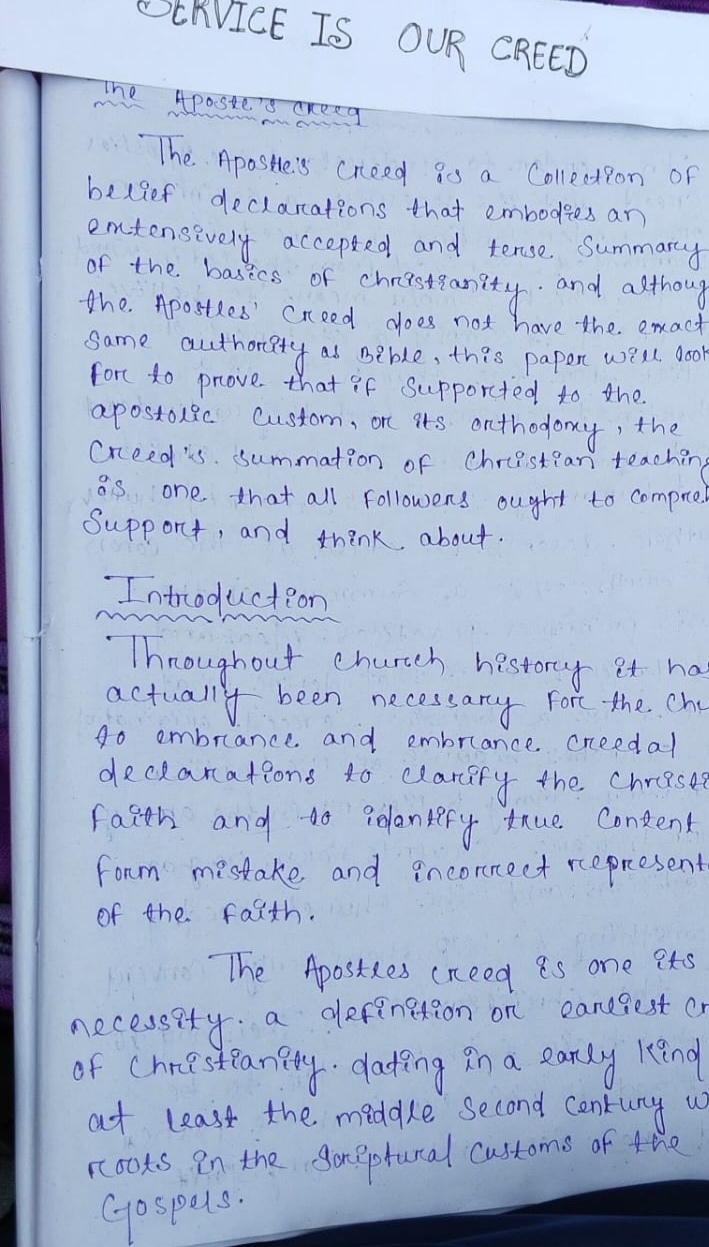 SERVICE IS OUR CREED
The Aposte's creed
The Apostle's Creed is a Collection of
belief declarations that embodies an
extensively accepted and tense Summary
of the basics of christianity. and althoug
the Apostles' Creed does not have the exact
Same authority as Bible, this paper will look
for to prove that if Supported to the
apostolic Custom, or its orthodoxy, the
Creed's summation of Christian teaching
is one that all followers ought to compre
Support, and think about.
Introduction
Throughout church history it has
actually been necessary For the Chu
to embrance and embrance creedal
declarations to clarify the Christi
faith and to identify true Content
form mistake and incorrect represent
of the faith.
The Apostles creed is one its
necessity. a definition or earliest cr
of Christianity. dating in a early kind
at least the middle Second Century w
roots in the Scriptural Customs of the
Gospels.